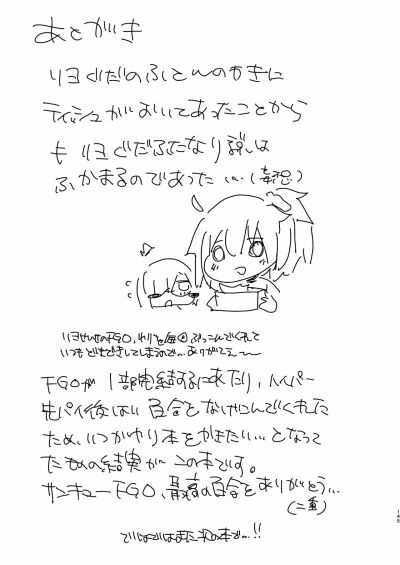 あとがき
リヨぐだのふとんのわきに
ティッシュがおいてあったことから
も リヨぐだふたなり説は
ふかまるのであった…。(幸福)
リヨせんせのFGO、わりと毎 ぶっこんでくれて
いつもどきどきしてしまるので…ありがてえ〜〜
FGOが1部完結するにあたり、ハイパー
先パイ後はい百合をなげこんでくれました
ため、いつかゆり本をかきたい…となって
たものの結実がこの本です。
サンキューFGO、最高の百合をありがとう…
ではではまた次の本で…!!
145